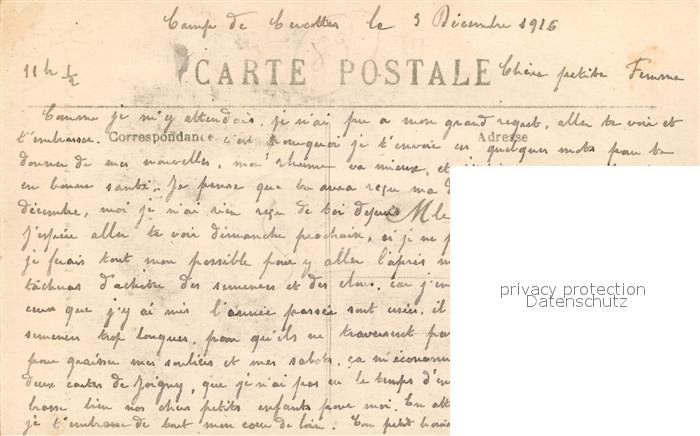 Camp de Cercottes le 3 Décembre 1916
11h ½
CARTE POSTALE
Chère petite Femme
Comme je m'y attendais, je n'ai pu a mon grand regret, aller te voir et
t'embrasser. c'est pourquoi je t'envoie ces quelques mots pour te
Correspondance
Adresse
donner de mes nouvelles, mon rhume va mieux, et
en bonne santé. Je pense que tu aura reçu ma
décembre, moi je n'ai rien reçu de toi depuis
M
J'espère aller te voir dimanche prochain, si je ne
je ferais tout mon possible pour y aller l'après
d'acheter des semences et des clous. car
ceux que j'y ai mis l'année passée sont usés. il
semences trop longues, pour qu'ils ne traversent pas
pour graisser mes souliers et mes sabots, ça
deux cartes de Joigny, que je n'ai pas eu le temps
bien nos chers petits enfants pour moi. En
je t'embrasse de tout mon cœur de loin. Ton petit
privacy protection
Datenschutz